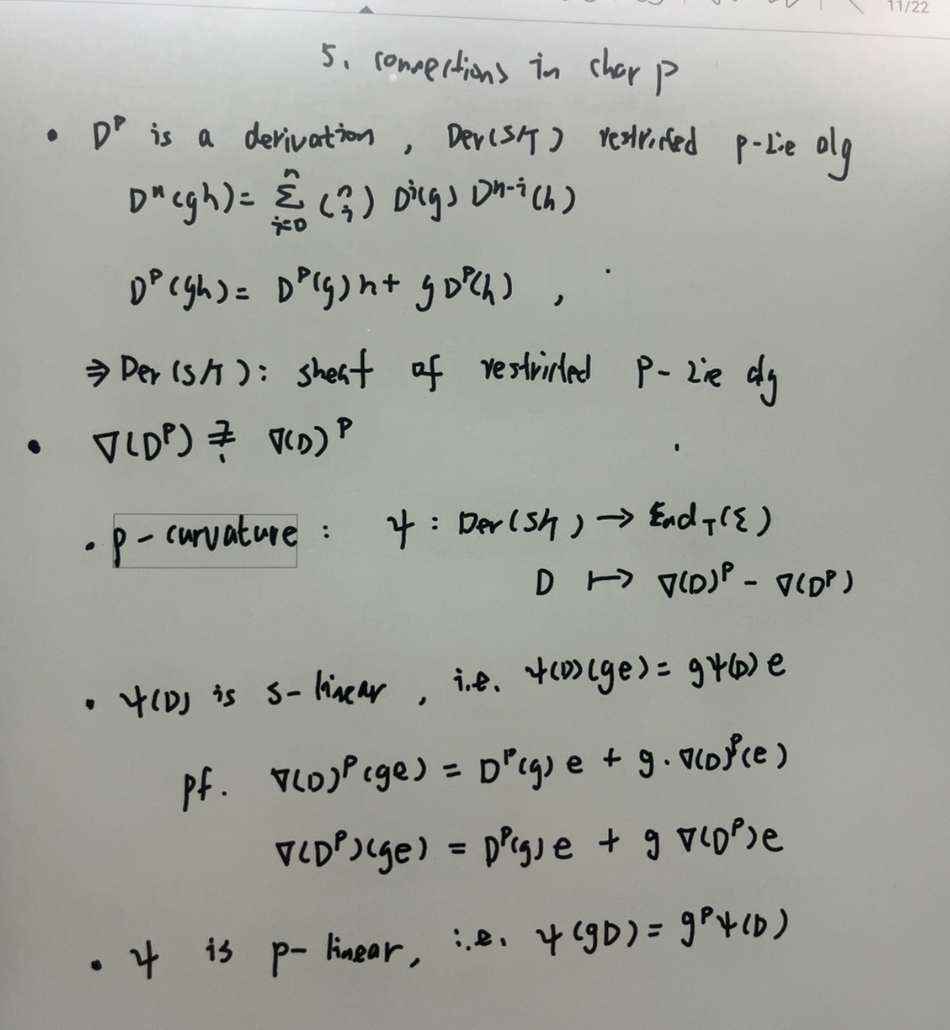 11/22
5. connections in char p
• Dᵖ is a derivation , Der(S/T) restricted p-Lie alg
Dⁿ(gh) = Σⁿᵢ₌₀ (ⁿᵢ) Dⁱ(g) Dⁿ⁻ⁱ(h)
Dᵖ(gh) = Dᵖ(g)h + g Dᵖ(h) ,
⇒ Der(S/T) : sheaf of restricted p-Lie alg
• ∇(Dᵖ) ≟ ∇(D)ᵖ
• p-curvature : ψ : Der(S/T) → End_T(ℰ)
D ↦ ∇(D)ᵖ - ∇(Dᵖ)
• ψ(D) is S-linear , i.e. ψ(D)(ge) = gψ(D)e
pf. ∇(D)ᵖ(ge) = Dᵖ(g)e + g·∇(D)ᵖ(e)
∇(Dᵖ)(ge) = Dᵖ(g)e + g ∇(Dᵖ)e
• ψ is p-linear, i.e. ψ(gD) = gᵖψ(D)